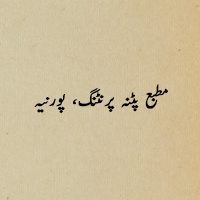 مطبع پٹنہ پرنٹنگ، پورنیہ